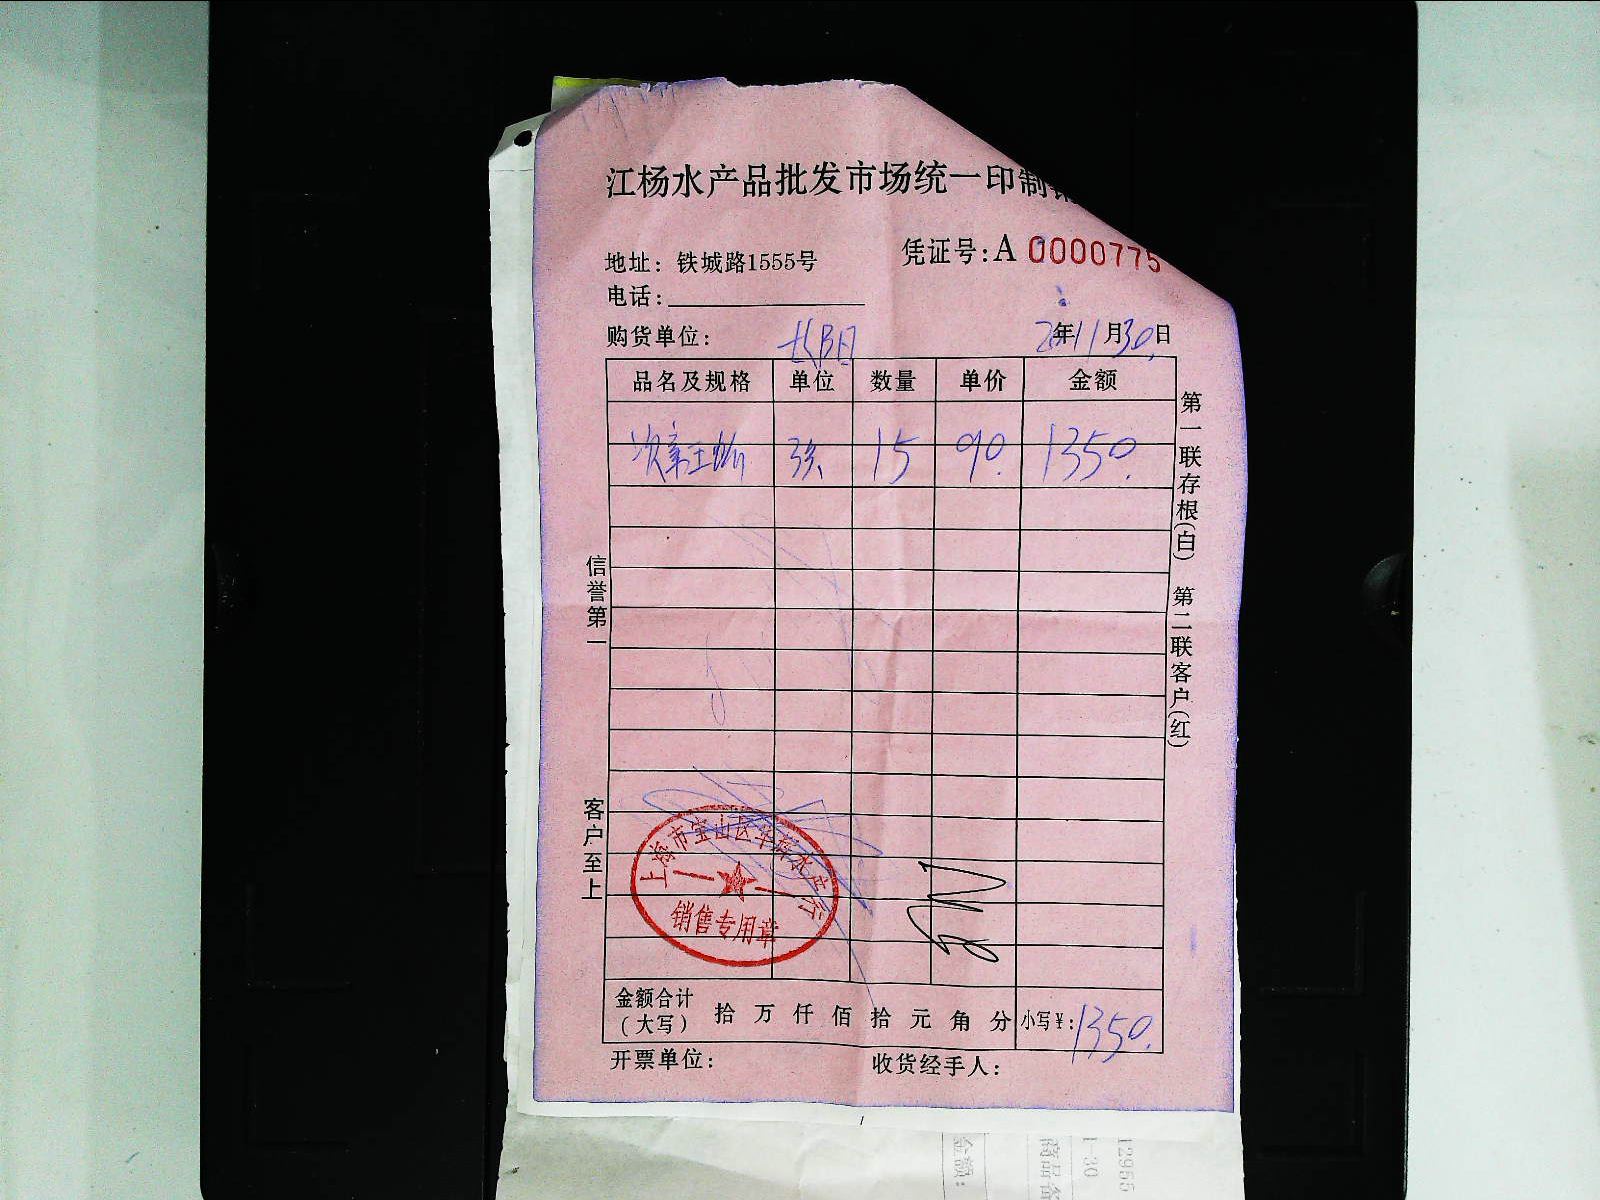 江杨水产品批发市场统一印制
地址：铁城路1555号
凭证号：A 0000775
电话：
购货单位：
年11月30日
品名及规格 单位 数量 单价 金额
15 90. 1350.
第一联存根（白） 第二联客户（红）
信誉第一
客户至上
上海市宝山区华 水产行
销售专用章
金额合计（大写） 拾 万 仟 佰 拾 元 角 分 小写￥：1350.
开票单位： 收货经手人：
金额：
商品
-30
12955